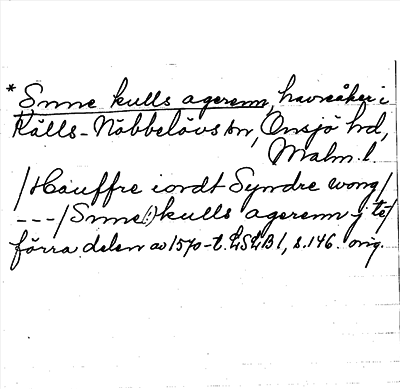 * Snne kulls agerenn, havreåker i
Källs-Nöbbelövs sn, Onsjö hd,
Malm. l.
/Hauffre iordt Syndre wong/
---/Snne(:) kulls agerenn j te/
förra delen av 1570-t. LSLB 1, s. 146. orig.